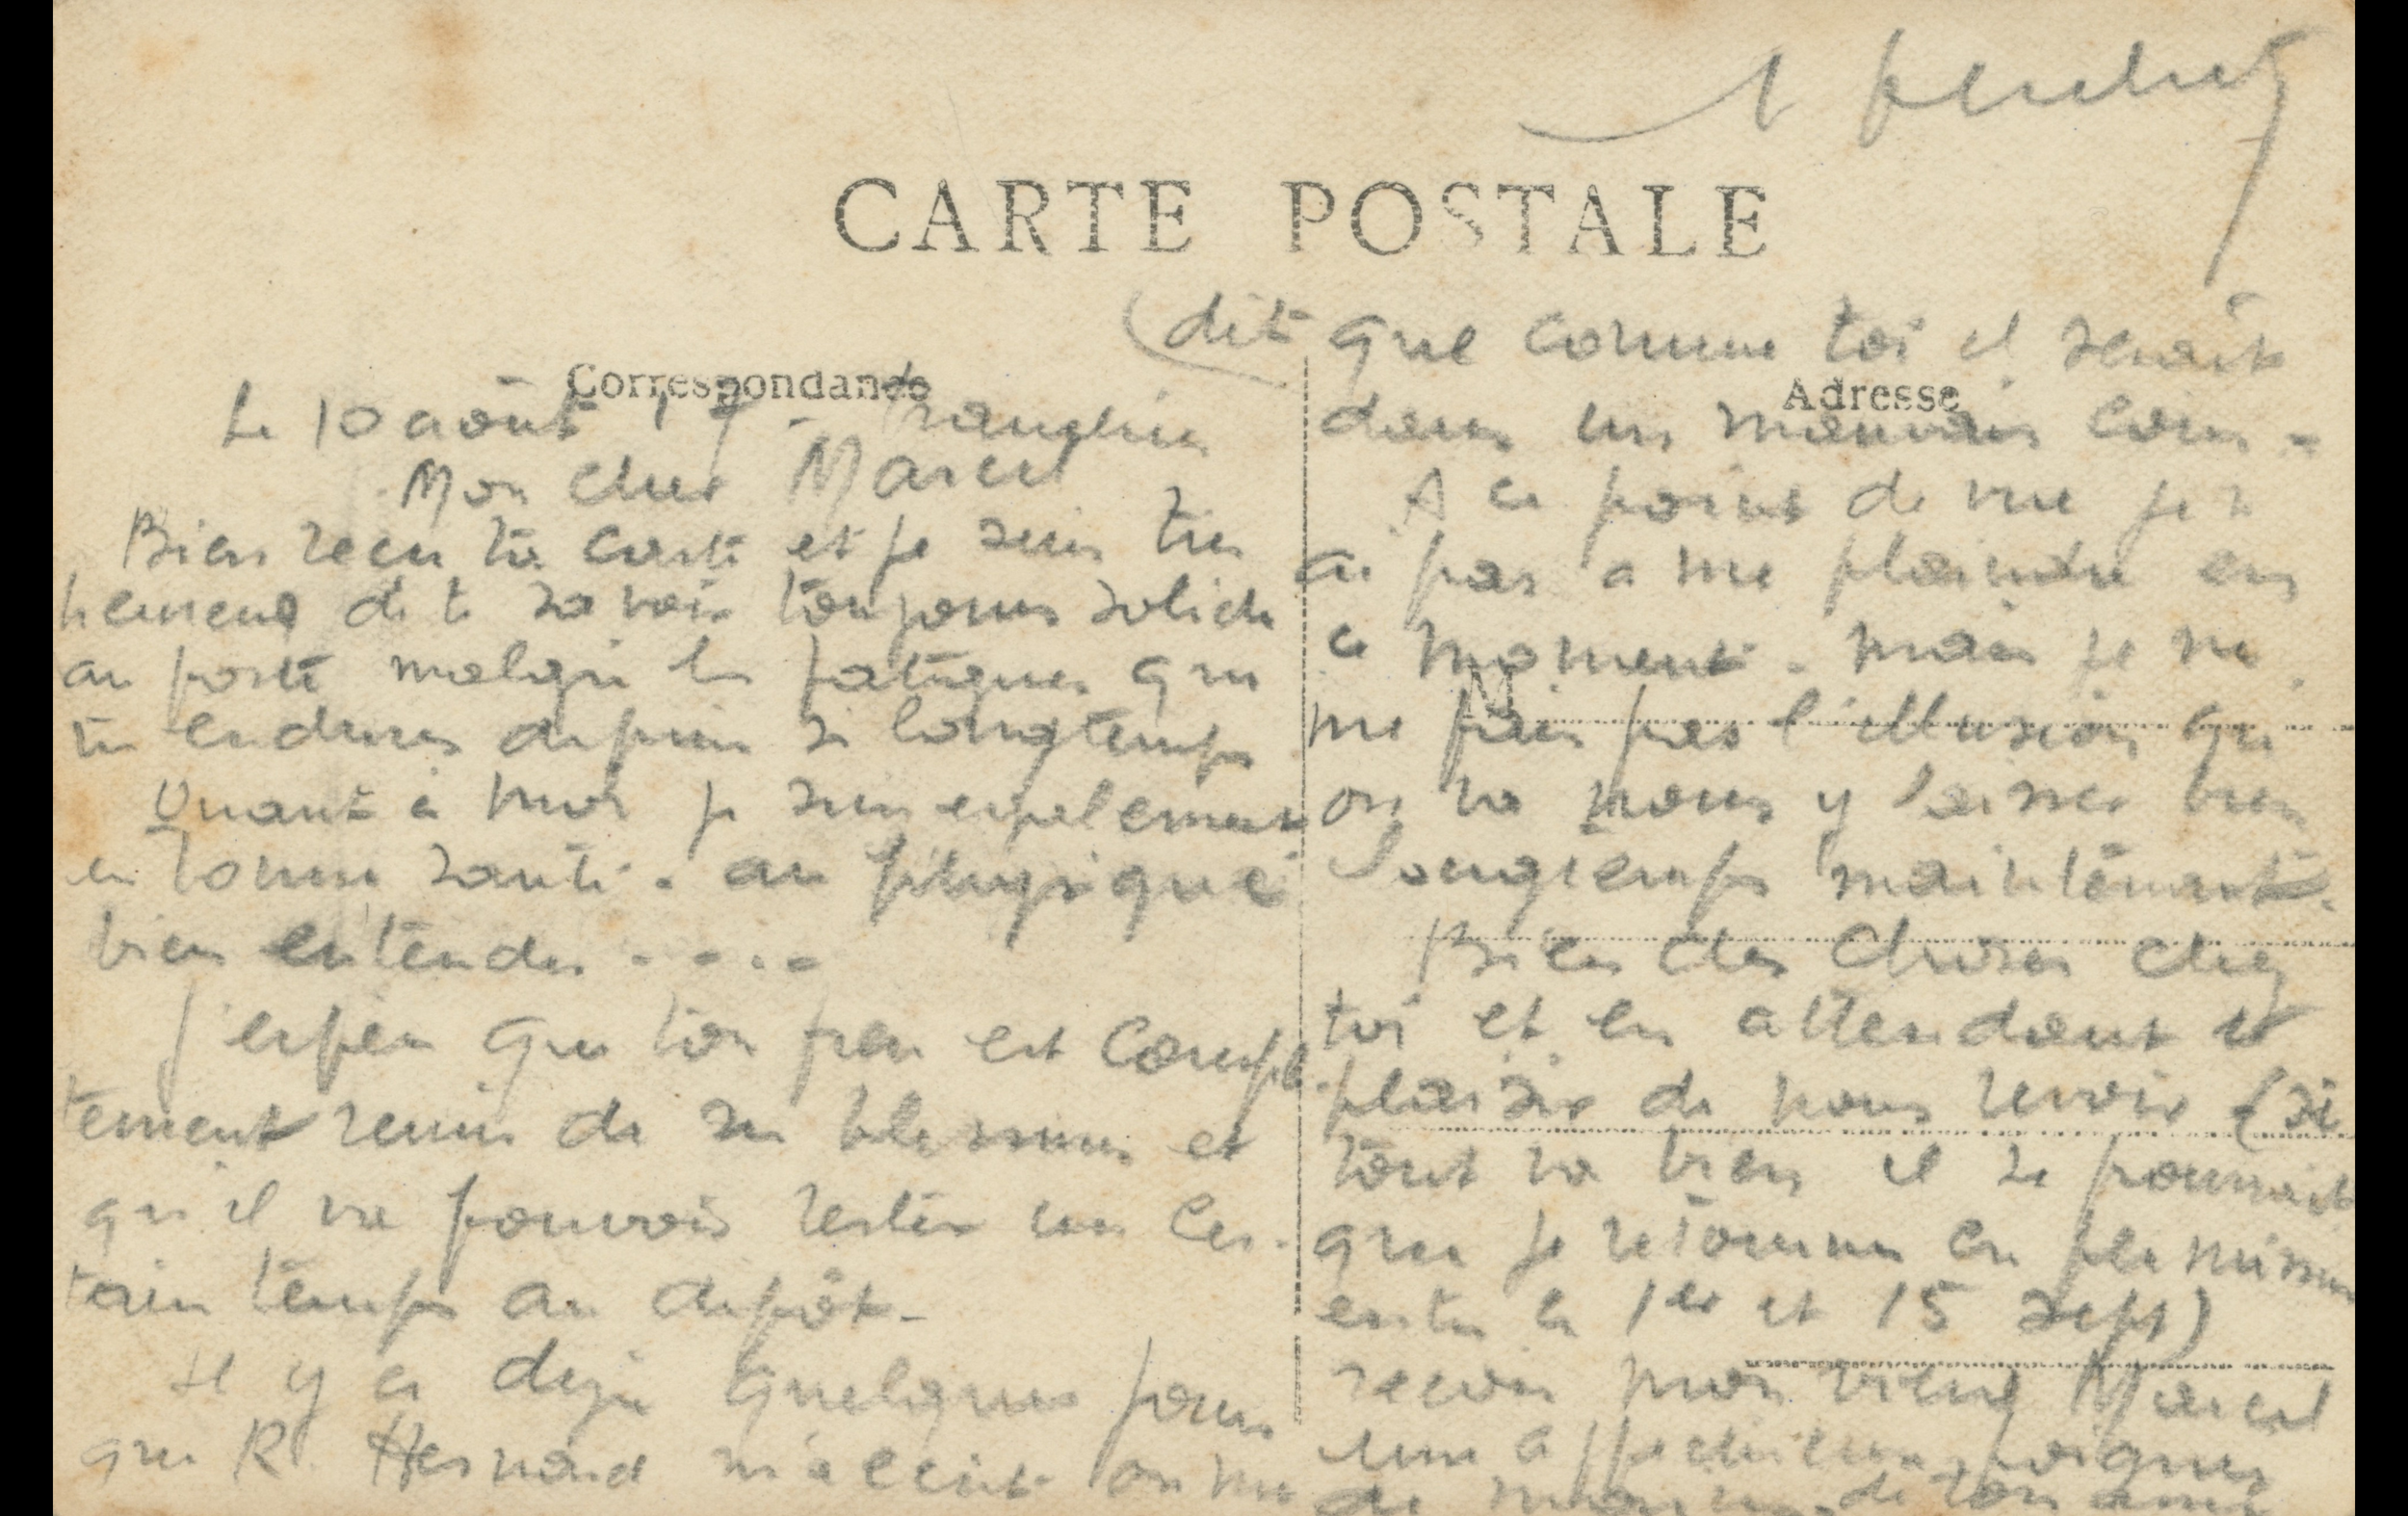 CARTE POSTALE
Correspondance
Le 10 août 17 -
Mon cher Marcel
Bien recu ta carte et je suis très
heureux de te savoir toujours solide
au poste malgré les fatigues que
tu endures depuis si longtemps
Quant à moi je suis egalement
en bonne santé. au physique
bien entendu . . . .
J'espère que ton frere est complè
tement remis de ses blessures et
qu'il va pouvoir rester un cer-
tain temps au depôt -
Il y a dejà quelques jours
que R. m'a ecrit on me
Adresse
(dit que comme toi il serait
dans un mauvais coin -
A ce point de vue je n
ai pas a me plaindre en
ce moment. mais je ne
me fais pas l'illusion qu
on va nous y laisser bien
longtemps maintenant.
Bien des choses chez
toi et en attendant le
plaisir de nous revoir (si
tout va bien il se pourrait
que je retourne en permission
entre le 1er et 15 sept)
recois mon vieux Marcel
une affectueuse poignee
de main. de ton ami